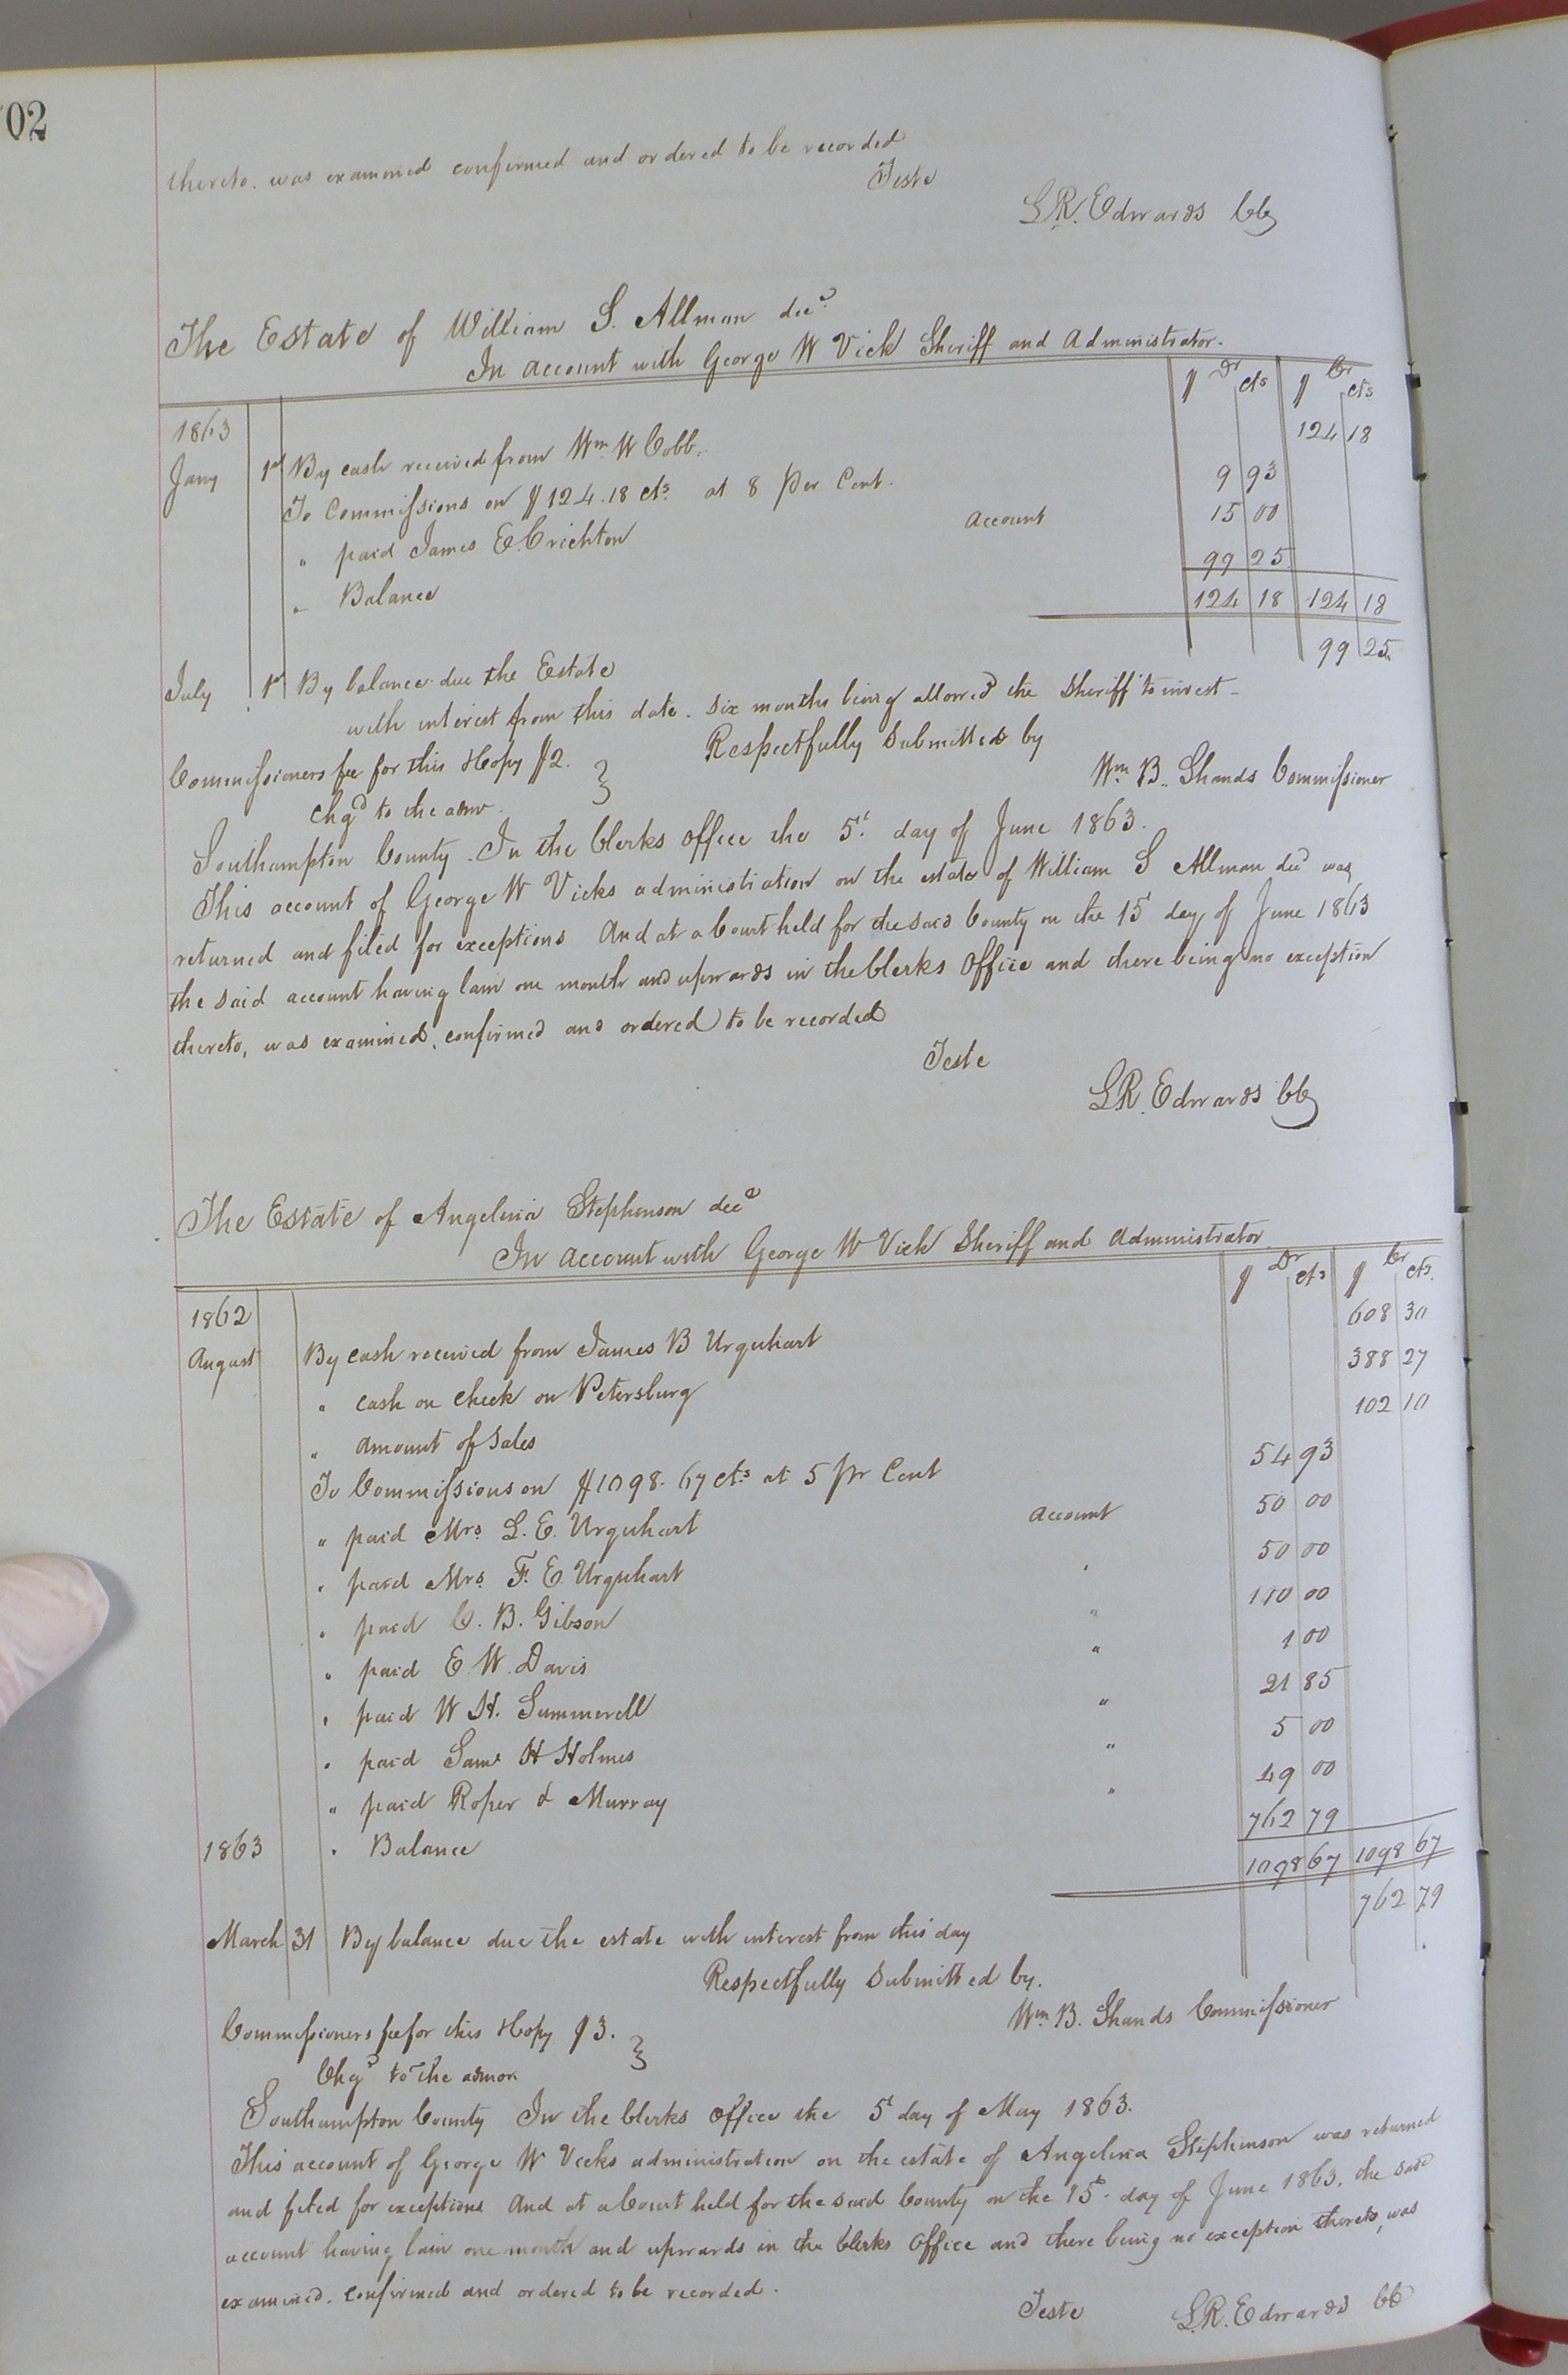 02
thereto. was examined confirmed and ordered to be recorded
Teste
L.R. Edwards CC
The Estate of William S. Allman decd
In account with George W Vick Sheriff and Administrator.
$ Dr cts $ Cr cts
1863
Jany 1st By cash received from Wm. W Cobb. 124 18
To Commissions on $124.18 cts. at 8 per Cent. 9 93
" paid James E. Crichton Account 15 00
" Balance 99 25
124 18 124 18
July 1st By balance due the Estate 99 25
with interest from this date. six months being allowed the sheriff to invest
Respectfully submitted by
Commissioners fee for this & Copy $2. }
Wm B. Shands Commissioner
chgd to the admr.
Southampton County. In the Clerks Office the 5t. day of June 1863.
This account of George W Vicks administration on the estate of William S Allman decd was
returned and filed for exceptions And at a Court held for the said County on the 15t day of June 1863
the said account having lain one month and upwards in the Clerks Office and there being no exception
thereto, was examined, confirmed and ordered to be recorded
Teste
L.R. Edwards CC
The Estate of Angelina Stephenson decd
In account with George W Vick Sheriff and Administrator
$ Dr cts $ Cr cts.
1862
August By cash received from James B Urquhart 608 30
" cash on check on Petersburg 388 27
" amount of sales 102 10
To Commissions on $1098.67 cts at 5 pr Cent 54 93
" paid Mrs. L. E. Urquhart Account 50 00
" paid Mrs. F. E. Urquhart " 50 00
" paid C. B. Gibson " 100 00
" paid E. W. Davis " 1 00
" paid W H. Summerell " 21 85
" paid Saml H Holmes " 5 00
" paid Roper & Murray " 49 00
1863 " Balance 762 79
1098 67 1098 67
March 31 By balance due the estate with interest from this day 762 79
Respectfully submitted by.
Wm. B. Shands Commissioner
Commissioners fee for this & Copy $3. }
Chgd to the admor
Southampton County In the Clerks Office the 5t day of May 1863.
This account of George W Vicks administration on the estate of Angelina Stephenson was returned
and filed for exceptions And at a Court held for the said County on the 15t. day of June 1863. the said
account having lain one month and upwards in the Clerks Office and there being no exception thereto, was
examined. confirmed and ordered to be recorded.
Teste L.R. Edwards CC